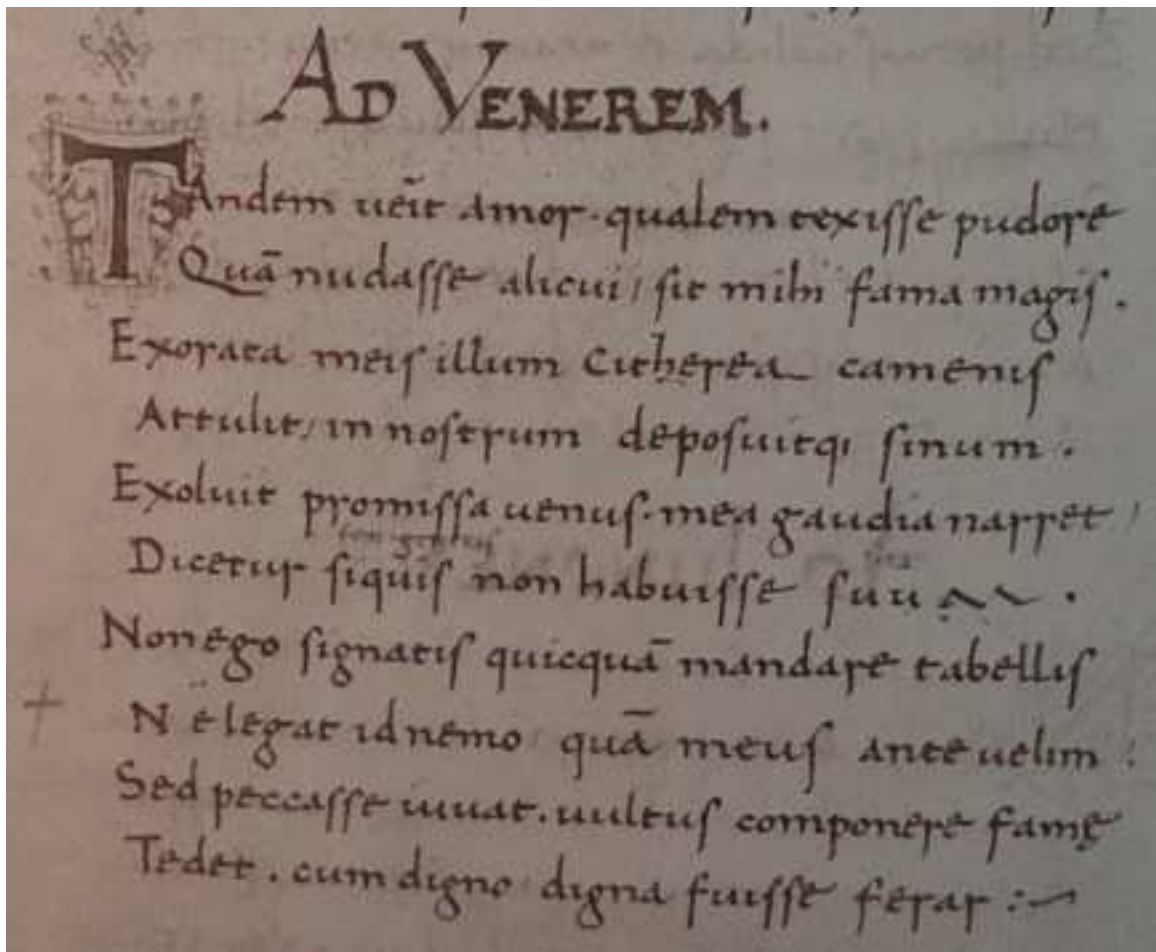 AD VENEREM.
TAndem uēit amor. qualem texisse pudore
Quā nudasse alicui / sit mihi fama magis.
Exorata meis illum Citherea camenis
Attulit / in nostrum deposuitq; sinum.
Exoluit promissa uenus. mea gaudia narret /
Dicetur siquis non habuisse suu .
Non ego signatis quicquā mandare tabellis
Ne legat id nemo quā meus ante uelim :
Sed peccasse iuuat. uultus componere famę
Tedet. cum digno digna fuisse ferar :~